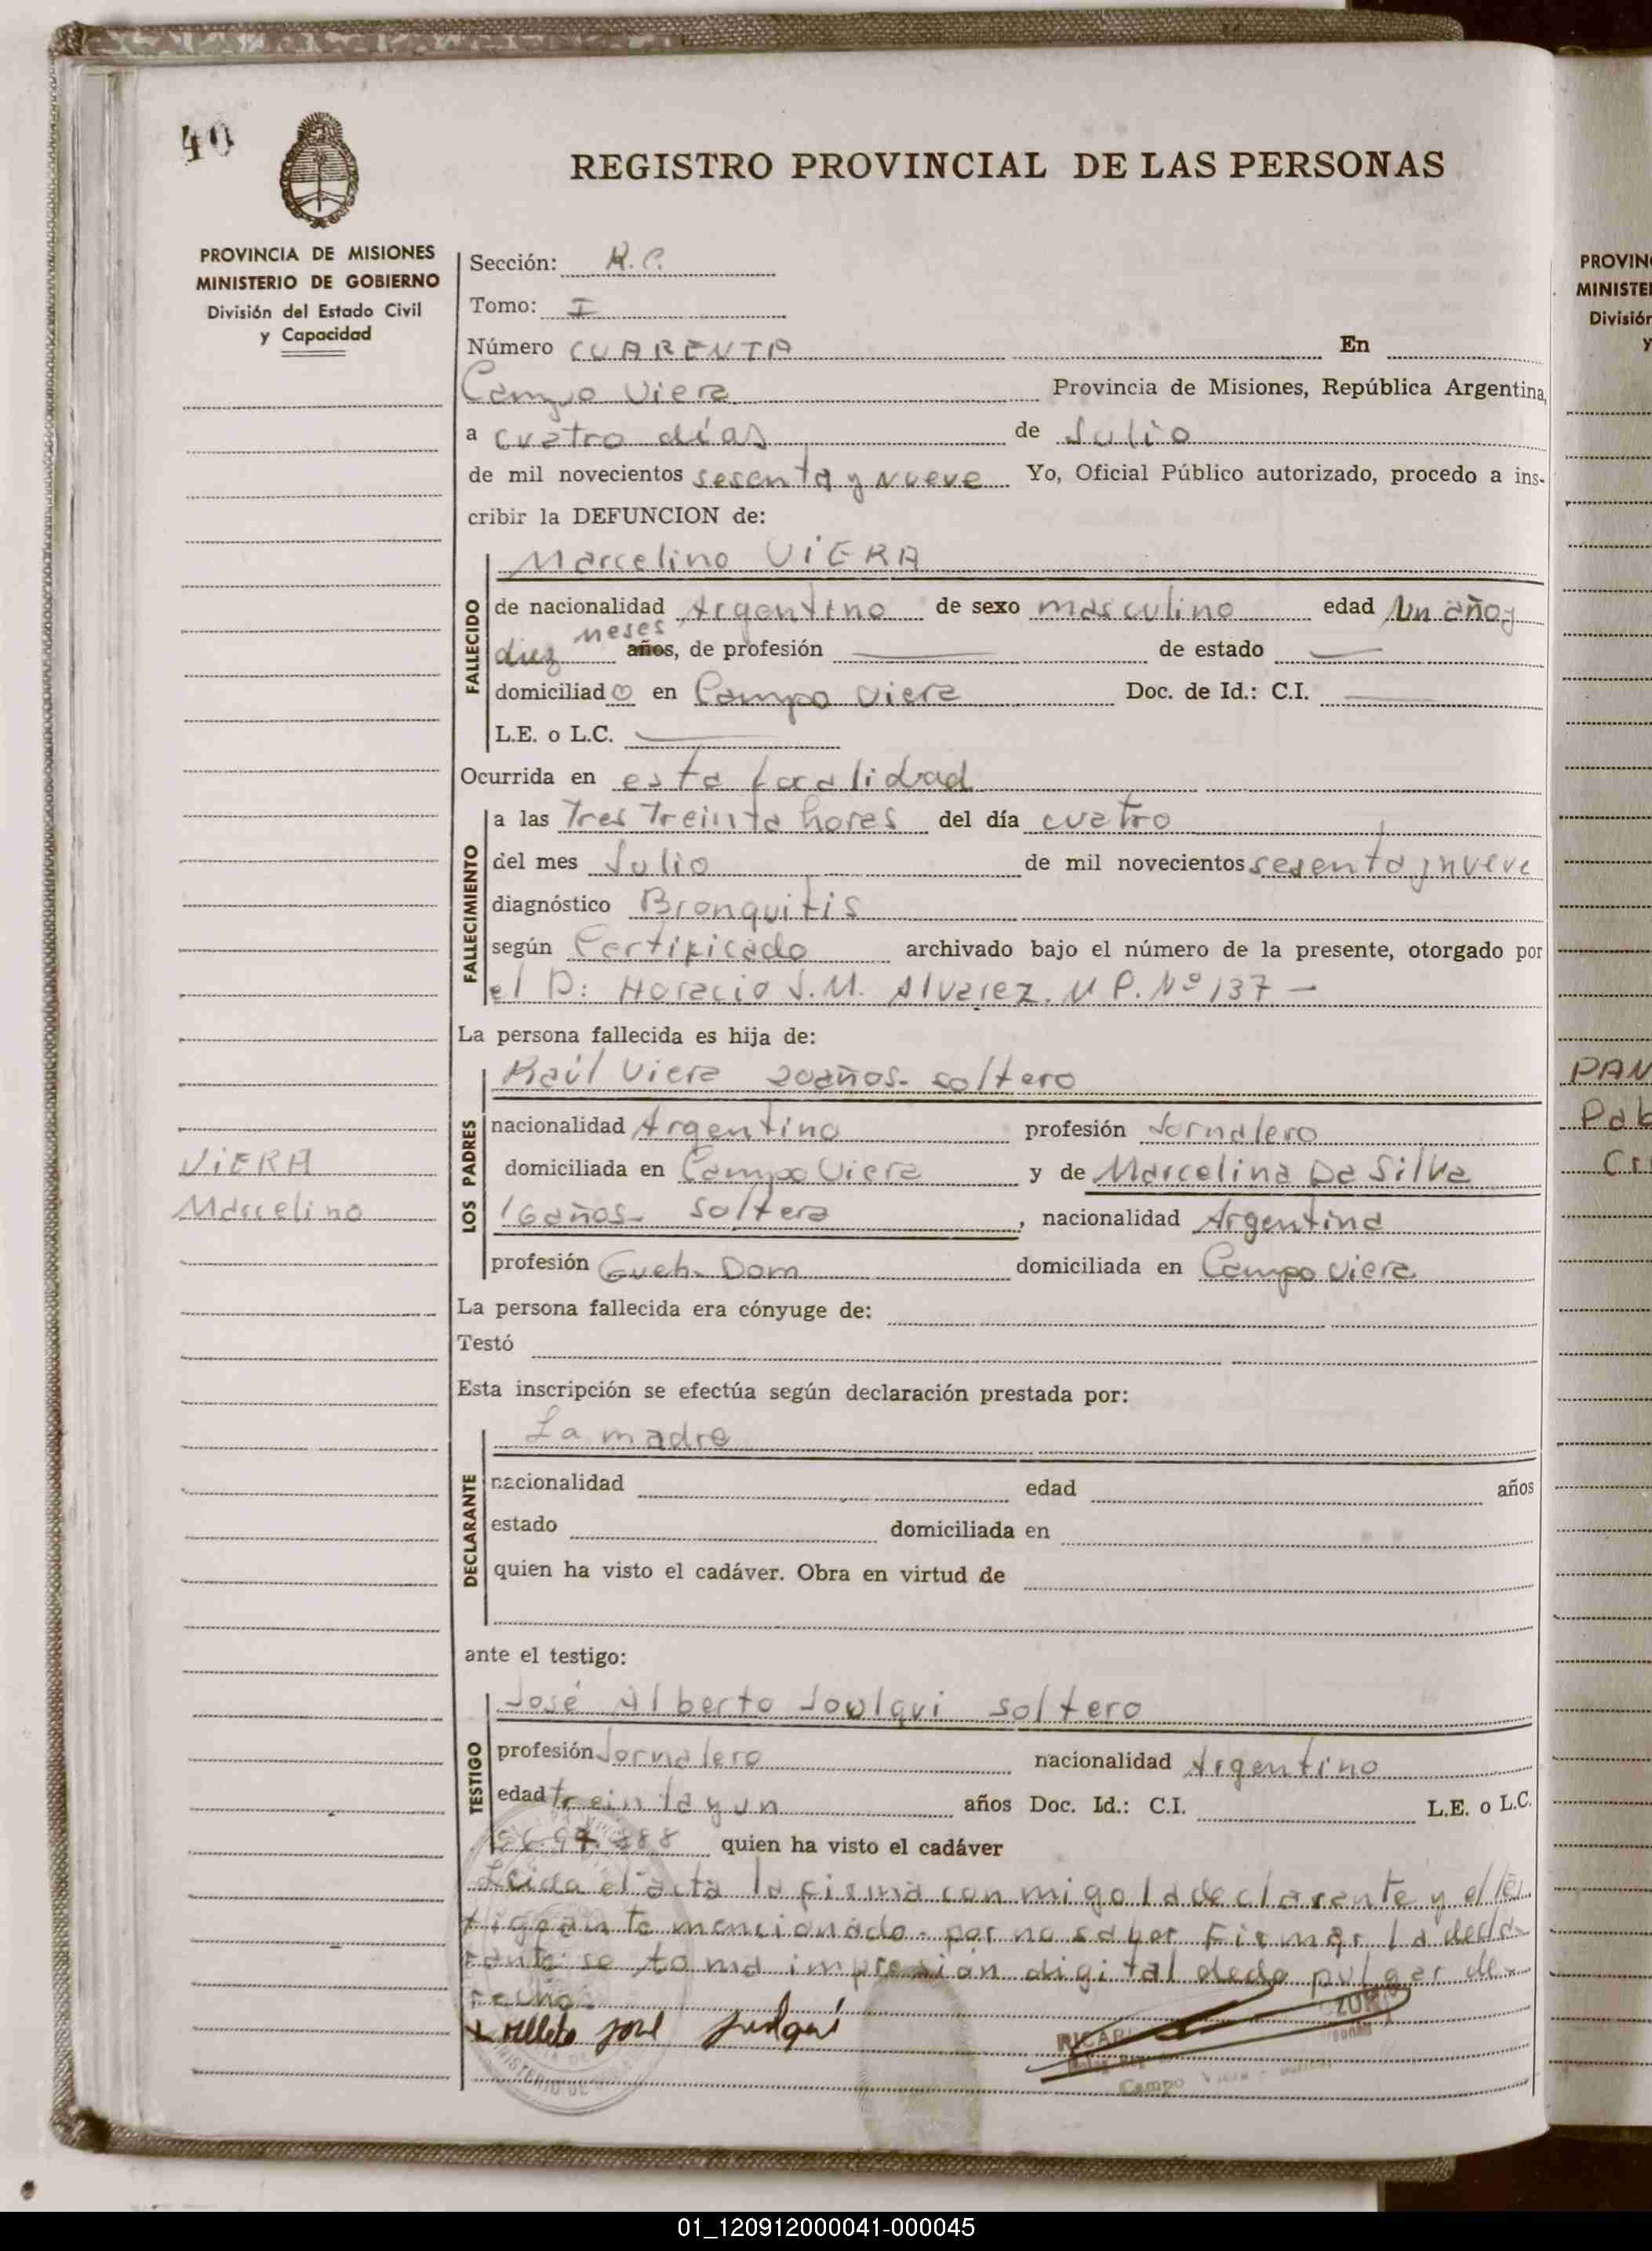 40
REGISTRO PROVINCIAL DE LAS PERSONAS
PROVINCIA DE MISIONES
MINISTERIO DE GOBIERNO
División del Estado Civil
y Capacidad
Sección: R.C.
Tomo: I
Número CUARENTA En
Campo Viera Provincia de Misiones, República Argentina,
a cuatro días de Julio
de mil novecientos sesenta y nueve Yo, Oficial Público autorizado, procedo a ins-
cribir la DEFUNCION de:
Marcelino VIERA
FALLECIDO
de nacionalidad Argentino de sexo masculino edad Un año y
meses
diez años, de profesión de estado
domiciliado en Campo Viera Doc. de Id.: C.I.
L.E. o L.C.
Ocurrida en esta localidad
FALLECIMIENTO
a las Tres Treinta horas del día cuatro
del mes Julio de mil novecientos sesenta y nueve
diagnóstico Bronquitis
según Certificado archivado bajo el número de la presente, otorgado por
el D: Horacio J.M. Alvarez. M P. Nº 137 —
La persona fallecida es hija de:
Raúl Viera 20 años- soltero
LOS PADRES
nacionalidad Argentino profesión Jornalero
domiciliada en Campo Viera y de Marcelina Da Silva
16 años- soltera, nacionalidad Argentina
profesión Queh. Dom domiciliada en Campo Viera
VIERA
Marcelino
La persona fallecida era cónyuge de:
Testó
Esta inscripción se efectúa según declaración prestada por:
La madre
DECLARANTE
nacionalidad edad años
estado domiciliada en
quien ha visto el cadáver. Obra en virtud de
ante el testigo:
José Alberto soltero
TESTIGO
profesión Jornalero nacionalidad Argentino
edad treinta y un años Doc. Id.: C.I. L.E. o L.C.
quien ha visto el cadáver
Leida el acta la firma con migo la declarante y el tes
tigo ante mencionado- por no saber firmar la decla
rante se toma impresión digital dedo pulgar de-
recho.
Campo Viera
PROVIN
MINISTE
División
y
PAN
Pab
Cri
01_120912000041-000045